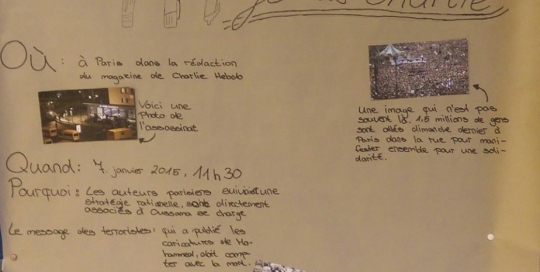 je suis Charlie
Où: à Paris dans la rédaction
du magazine de Charlie Hebdo
Voici une
photo de
l'assassinat
Une image qui n'est pas
souvent là. 1,5 millions de gens
sont allés dimanche dernier à
Paris dans la rue pour mani-
fester ensemble pour une soli-
darité.
Quand: 7. janvier 2015, 11h30
Pourquoi: Les auteurs parisiens suivaient une
stratégie rationelle, sans directement
associés à
se charge
Le message des terroristes: qui a publié les
caricatures de Mo-
hammed, doit comp-
ter avec la mort.